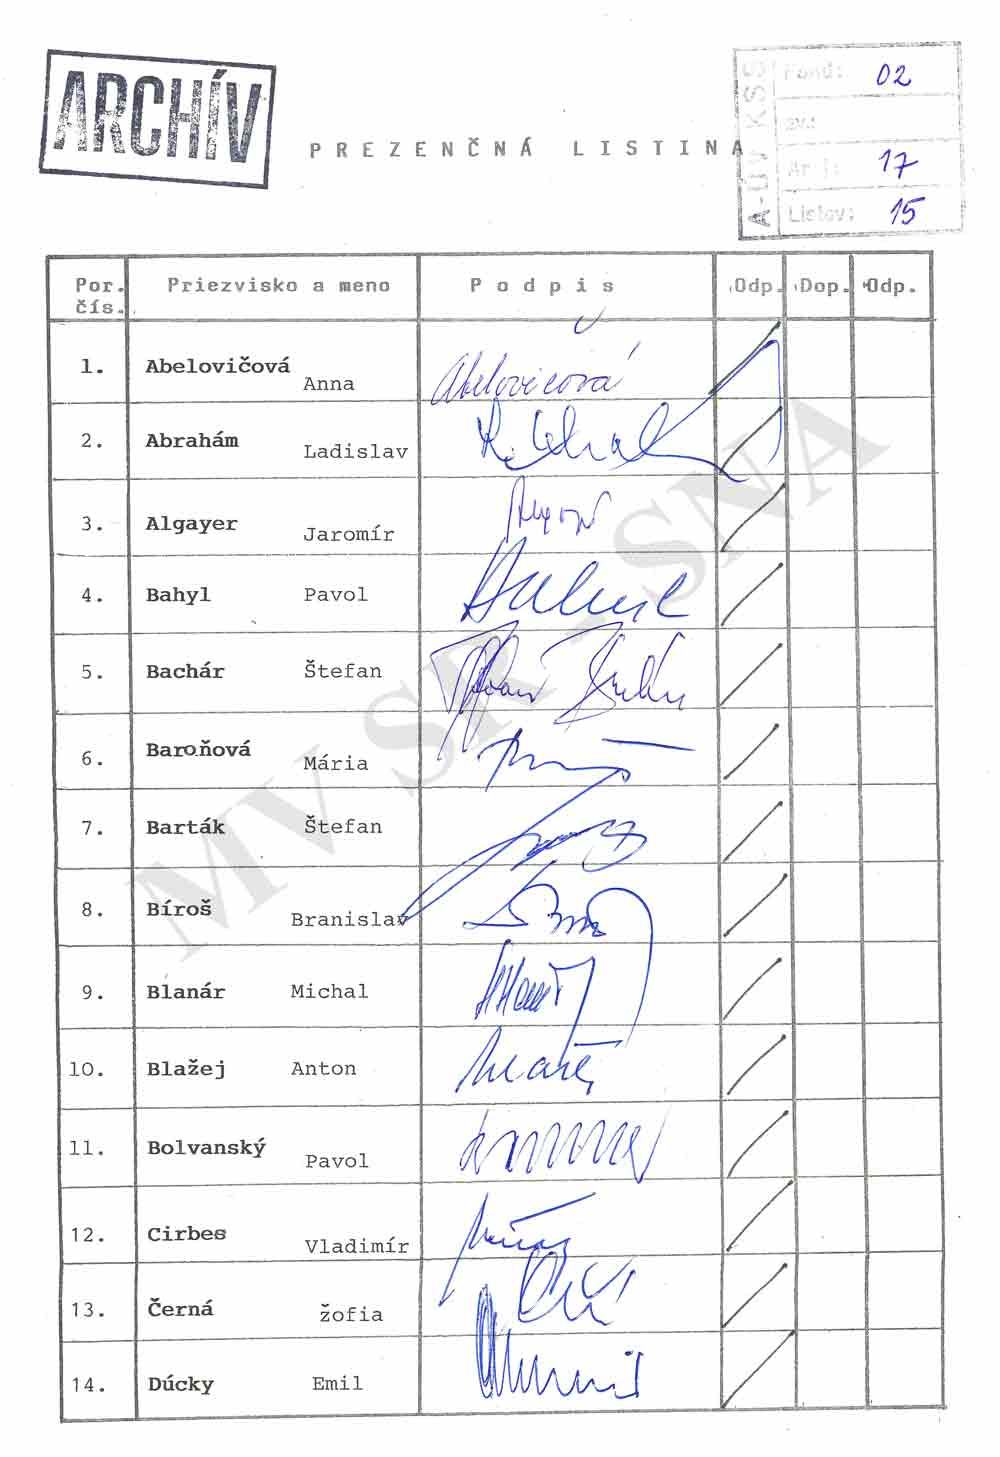 ARCHÍV
PREZENČNÁ LISTINA
A-ÚV KSS
Fond: 02
Ar j: 17
Listov: 15
Por. čís. Priezvisko a meno Podpis Odp. Dop. Odp.
1. Abelovičová Anna Abelovičová
2. Abrahám Ladislav
3. Algayer Jaromír
4. Bahyl Pavol
5. Bachár Štefan
6. Baroňová Mária
7. Barták Štefan
8. Bíroš Branislav
9. Blanár Michal
10. Blažej Anton
11. Bolvanský Pavol
12. Cirbes Vladimír
13. Černá žofia
14. Dúcky Emil
MV SR - SNA